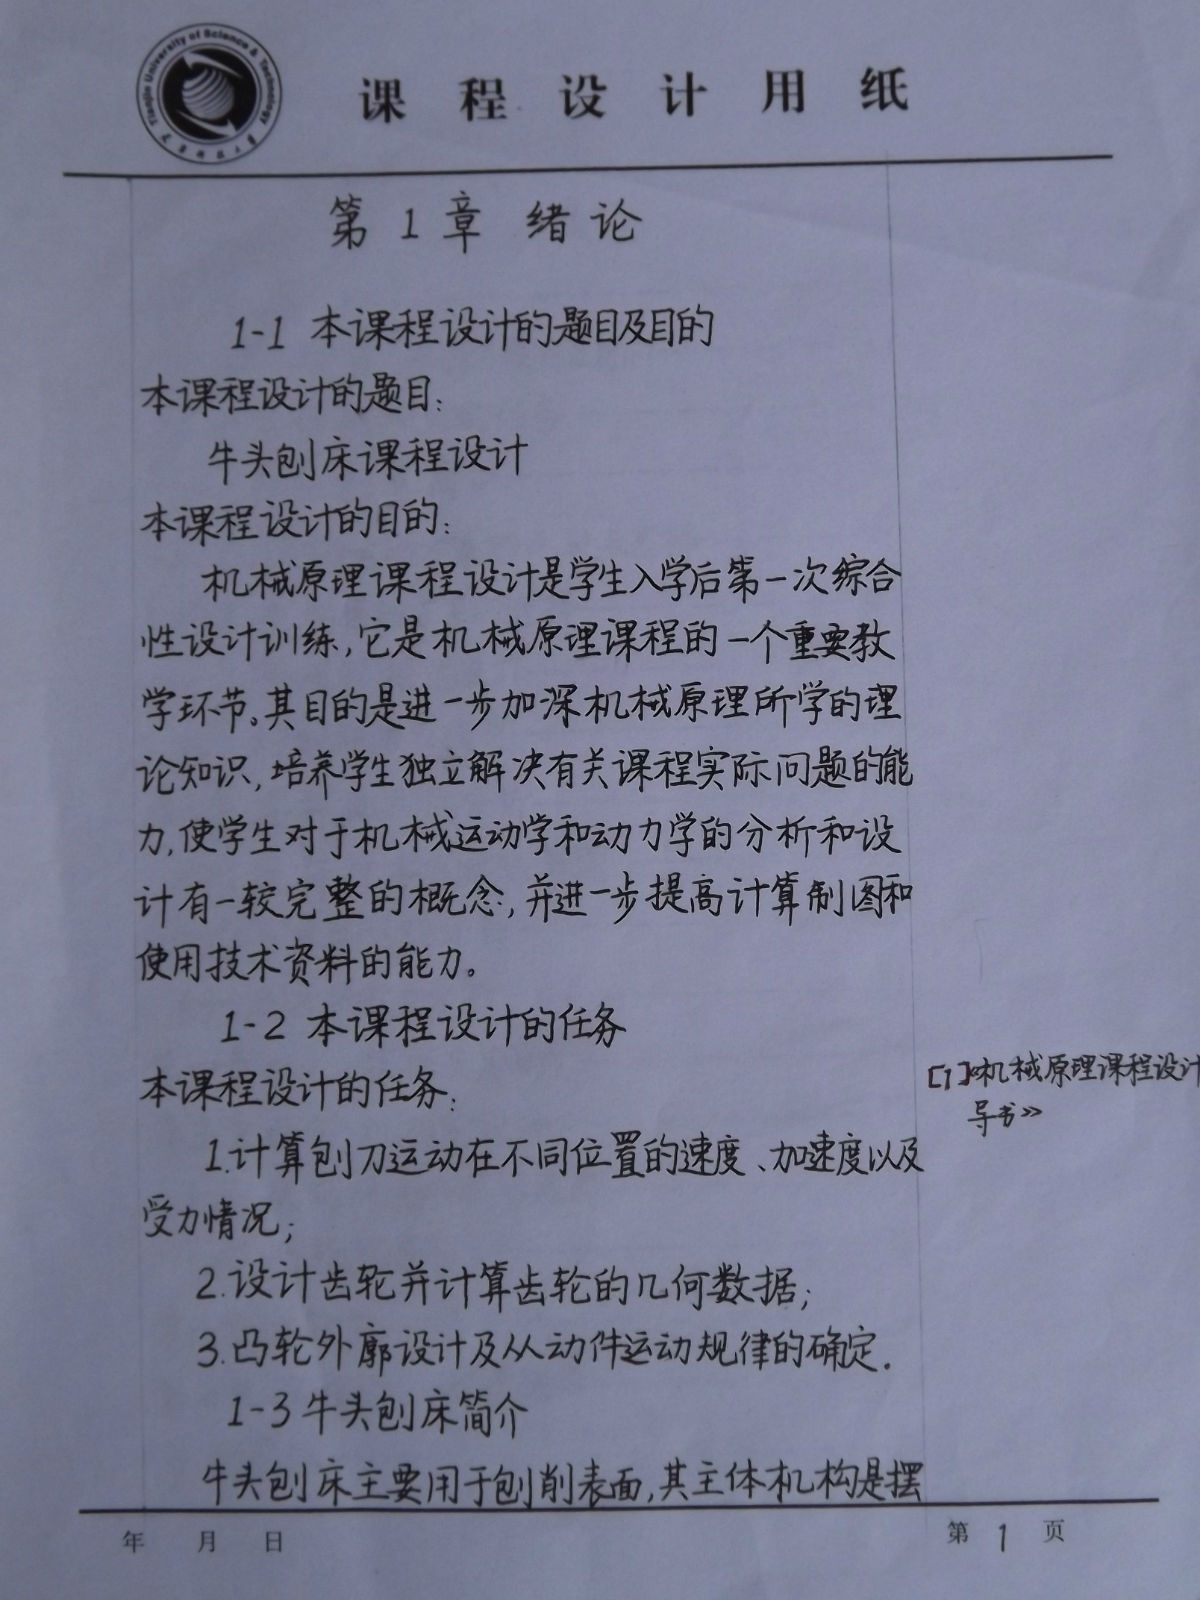 Tianjin University of Science & Technology
课程设计用纸
第1章 绪论
1-1 本课程设计的题目及目的
本课程设计的题目:
牛头刨床课程设计
本课程设计的目的:
机械原理课程设计是学生入学后第一次综合
性设计训练,它是机械原理课程的一个重要教
学环节。其目的是进一步加深机械原理所学的理
论知识,培养学生独立解决有关课程实际问题的能
力,使学生对于机械运动学和动力学的分析和设
计有一较完整的概念,并进一步提高计算制图和
使用技术资料的能力。
1-2 本课程设计的任务
本课程设计的任务:
[1]《机械原理课程设计
导书》
1.计算刨刀运动在不同位置的速度、加速度以及
受力情况;
2.设计齿轮并计算齿轮的几何数据;
3.凸轮外廓设计及从动件运动规律的确定.
1-3 牛头刨床简介
牛头刨床主要用于刨削表面,其主体机构是摆
年 月 日
第 1 页